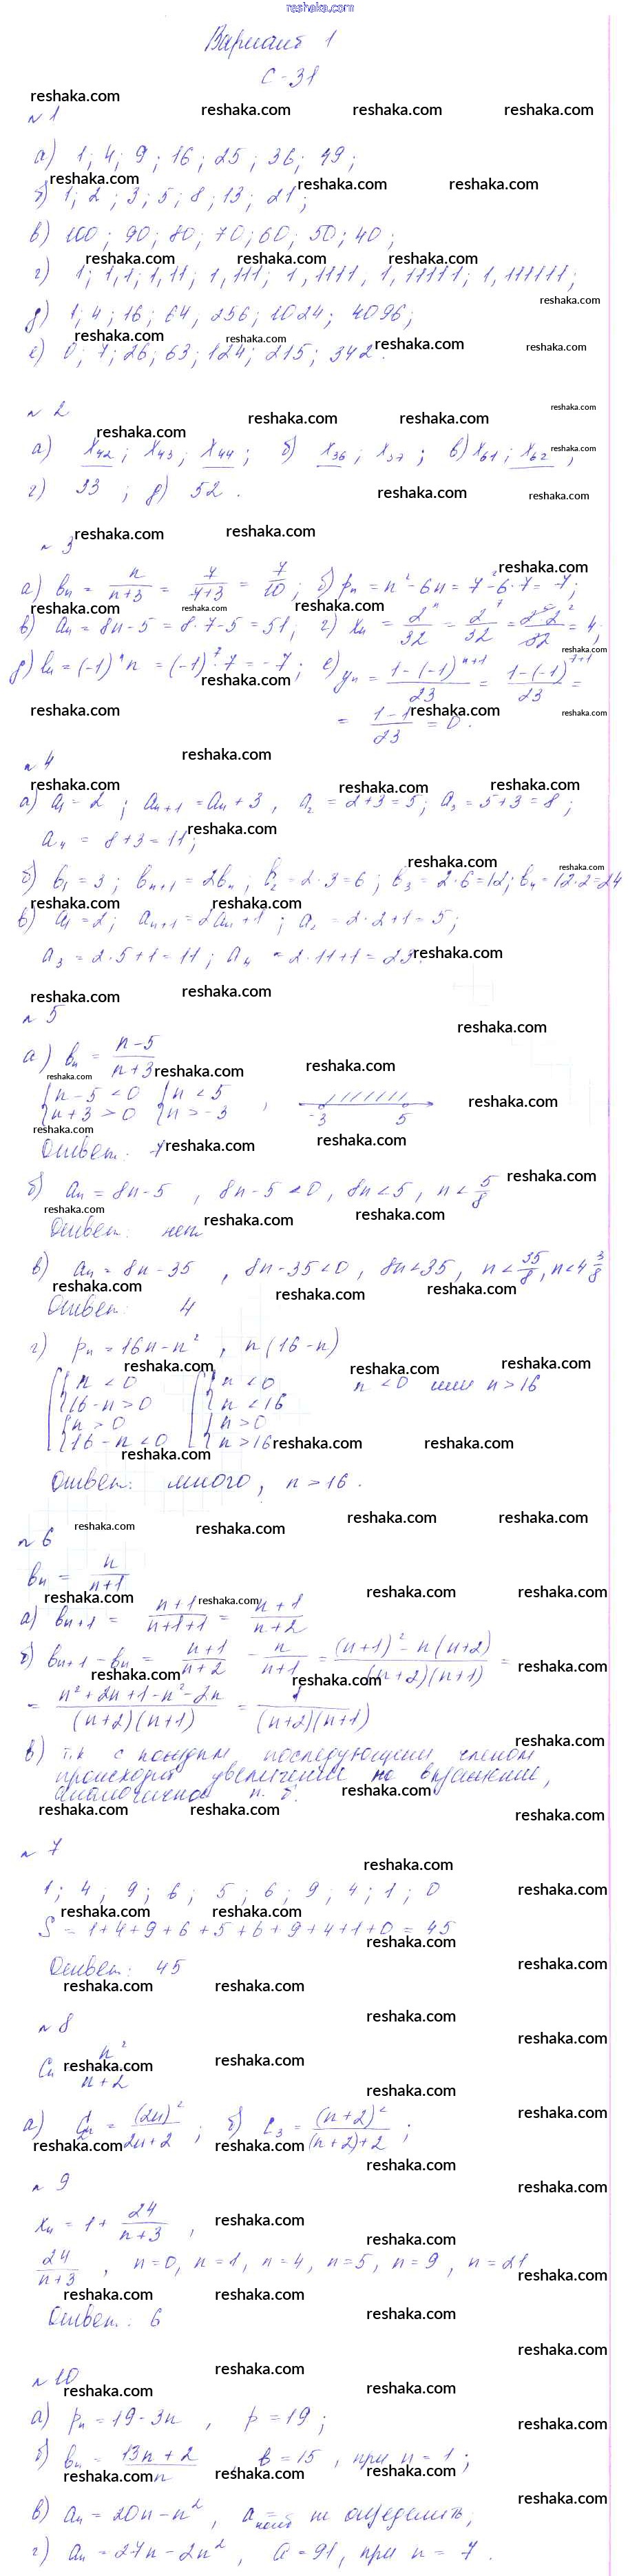 reshaka.com
Вариант 1
С-31
№1
а) 1; 4; 9; 16; 25; 36; 49;
б) 1; 2; 3; 5; 8; 13; 21;
в) 100; 90; 80; 70; 60; 50; 40;
г) 1; 1,1; 1,11; 1,111; 1,1111, 1,11111; 1,111111;
д) 1; 4; 16; 64, 256; 1024; 4096;
е) 0; 7; 26; 63; 124; 215; 342.
№2
а) x₄₂; x₄₃; x₄₄; б) x₃₆; x₃₇; в) x₆₁; x₆₂;
г) 33; д) 52.
№3
а) bₙ = n/(n+3) = 7/(7+3) = 7/10; б) pₙ = n²-6n = 7²-6·7 = 7;
в) aₙ = 8n-5 = 8·7-5 = 51; г) xₙ = 2ⁿ/32 = 2⁷/32 = 2⁵·2²/32 = 4;
д) lₙ = (-1)ⁿn = (-1)⁷·7 = -7; е) yₙ = (1-(-1)ⁿ⁺¹)/23 = (1-(-1)⁷⁺¹)/23 =
= (1-1)/23 = 0.
№4
а) a₁ = 2; aₙ₊₁ = aₙ+3, a₂ = 2+3 = 5; a₃ = 5+3 = 8;
a₄ = 8+3 = 11;
б) b₁ = 3; bₙ₊₁ = 2bₙ; b₂ = 2·3 = 6; b₃ = 2·6 = 12; b₄ = 12·2 = 24
в) a₁ = 2; aₙ₊₁ = 2aₙ+1; a₂ = 2·2+1 = 5;
a₃ = 2·5+1 = 11; a₄ = 2·11+1 = 23.
№5
а) bₙ = (n-5)/(n+3)
{n-5<0 {n<5
{n+3>0 {n>-3, -3 5
Ответ:
б) aₙ = 8n-5, 8n-5<0, 8n<5, n<5/8
Ответ: нет
в) aₙ = 8n-35, 8n-35<0, 8n<35, n<35/8, n<4 3/8
Ответ: 4
г) pₙ = 16n-n², n(16-n)
{n<0 {n<0 n<0 или n>16
{16-n>0 {n<16
{n>0 {n>0
{16-n<0 {n>16
Ответ: много, n>16.
№6
bₙ = n/(n+1)
а) bₙ₊₁ = (n+1)/(n+1+1) = (n+1)/(n+2)
б) bₙ₊₁-bₙ = (n+1)/(n+2) - n/(n+1) = ((n+1)²-n(n+2))/((n+2)(n+1)) =
= (n²+2n+1-n²-2n)/((n+2)(n+1)) = 1/((n+2)(n+1))
в) т.к с каждым последующим членом
происходит увеличение на выражение,
аналогично п. б.
№7
1; 4; 9; 6; 5; 6; 9; 4; 1; 0
S = 1+4+9+6+5+6+9+4+1+0 = 45
Ответ: 45
№8
Cₙ n²/(n+2)
а) = (2n)²/(2n+2); б) = (n+2)²/((n+2)+2);
№9
xₙ = 1+24/(n+3),
24/(n+3), n=0, n=1, n=4, n=5, n=9, n=21
Ответ: 6
№10
а) pₙ = 19-3n, p=19;
б) bₙ = (13n+2)/n, b=15, при n=1;
в) aₙ = 20n-n², a наиб не определить;
г) aₙ = 27n-2n², a=91, при n=7.